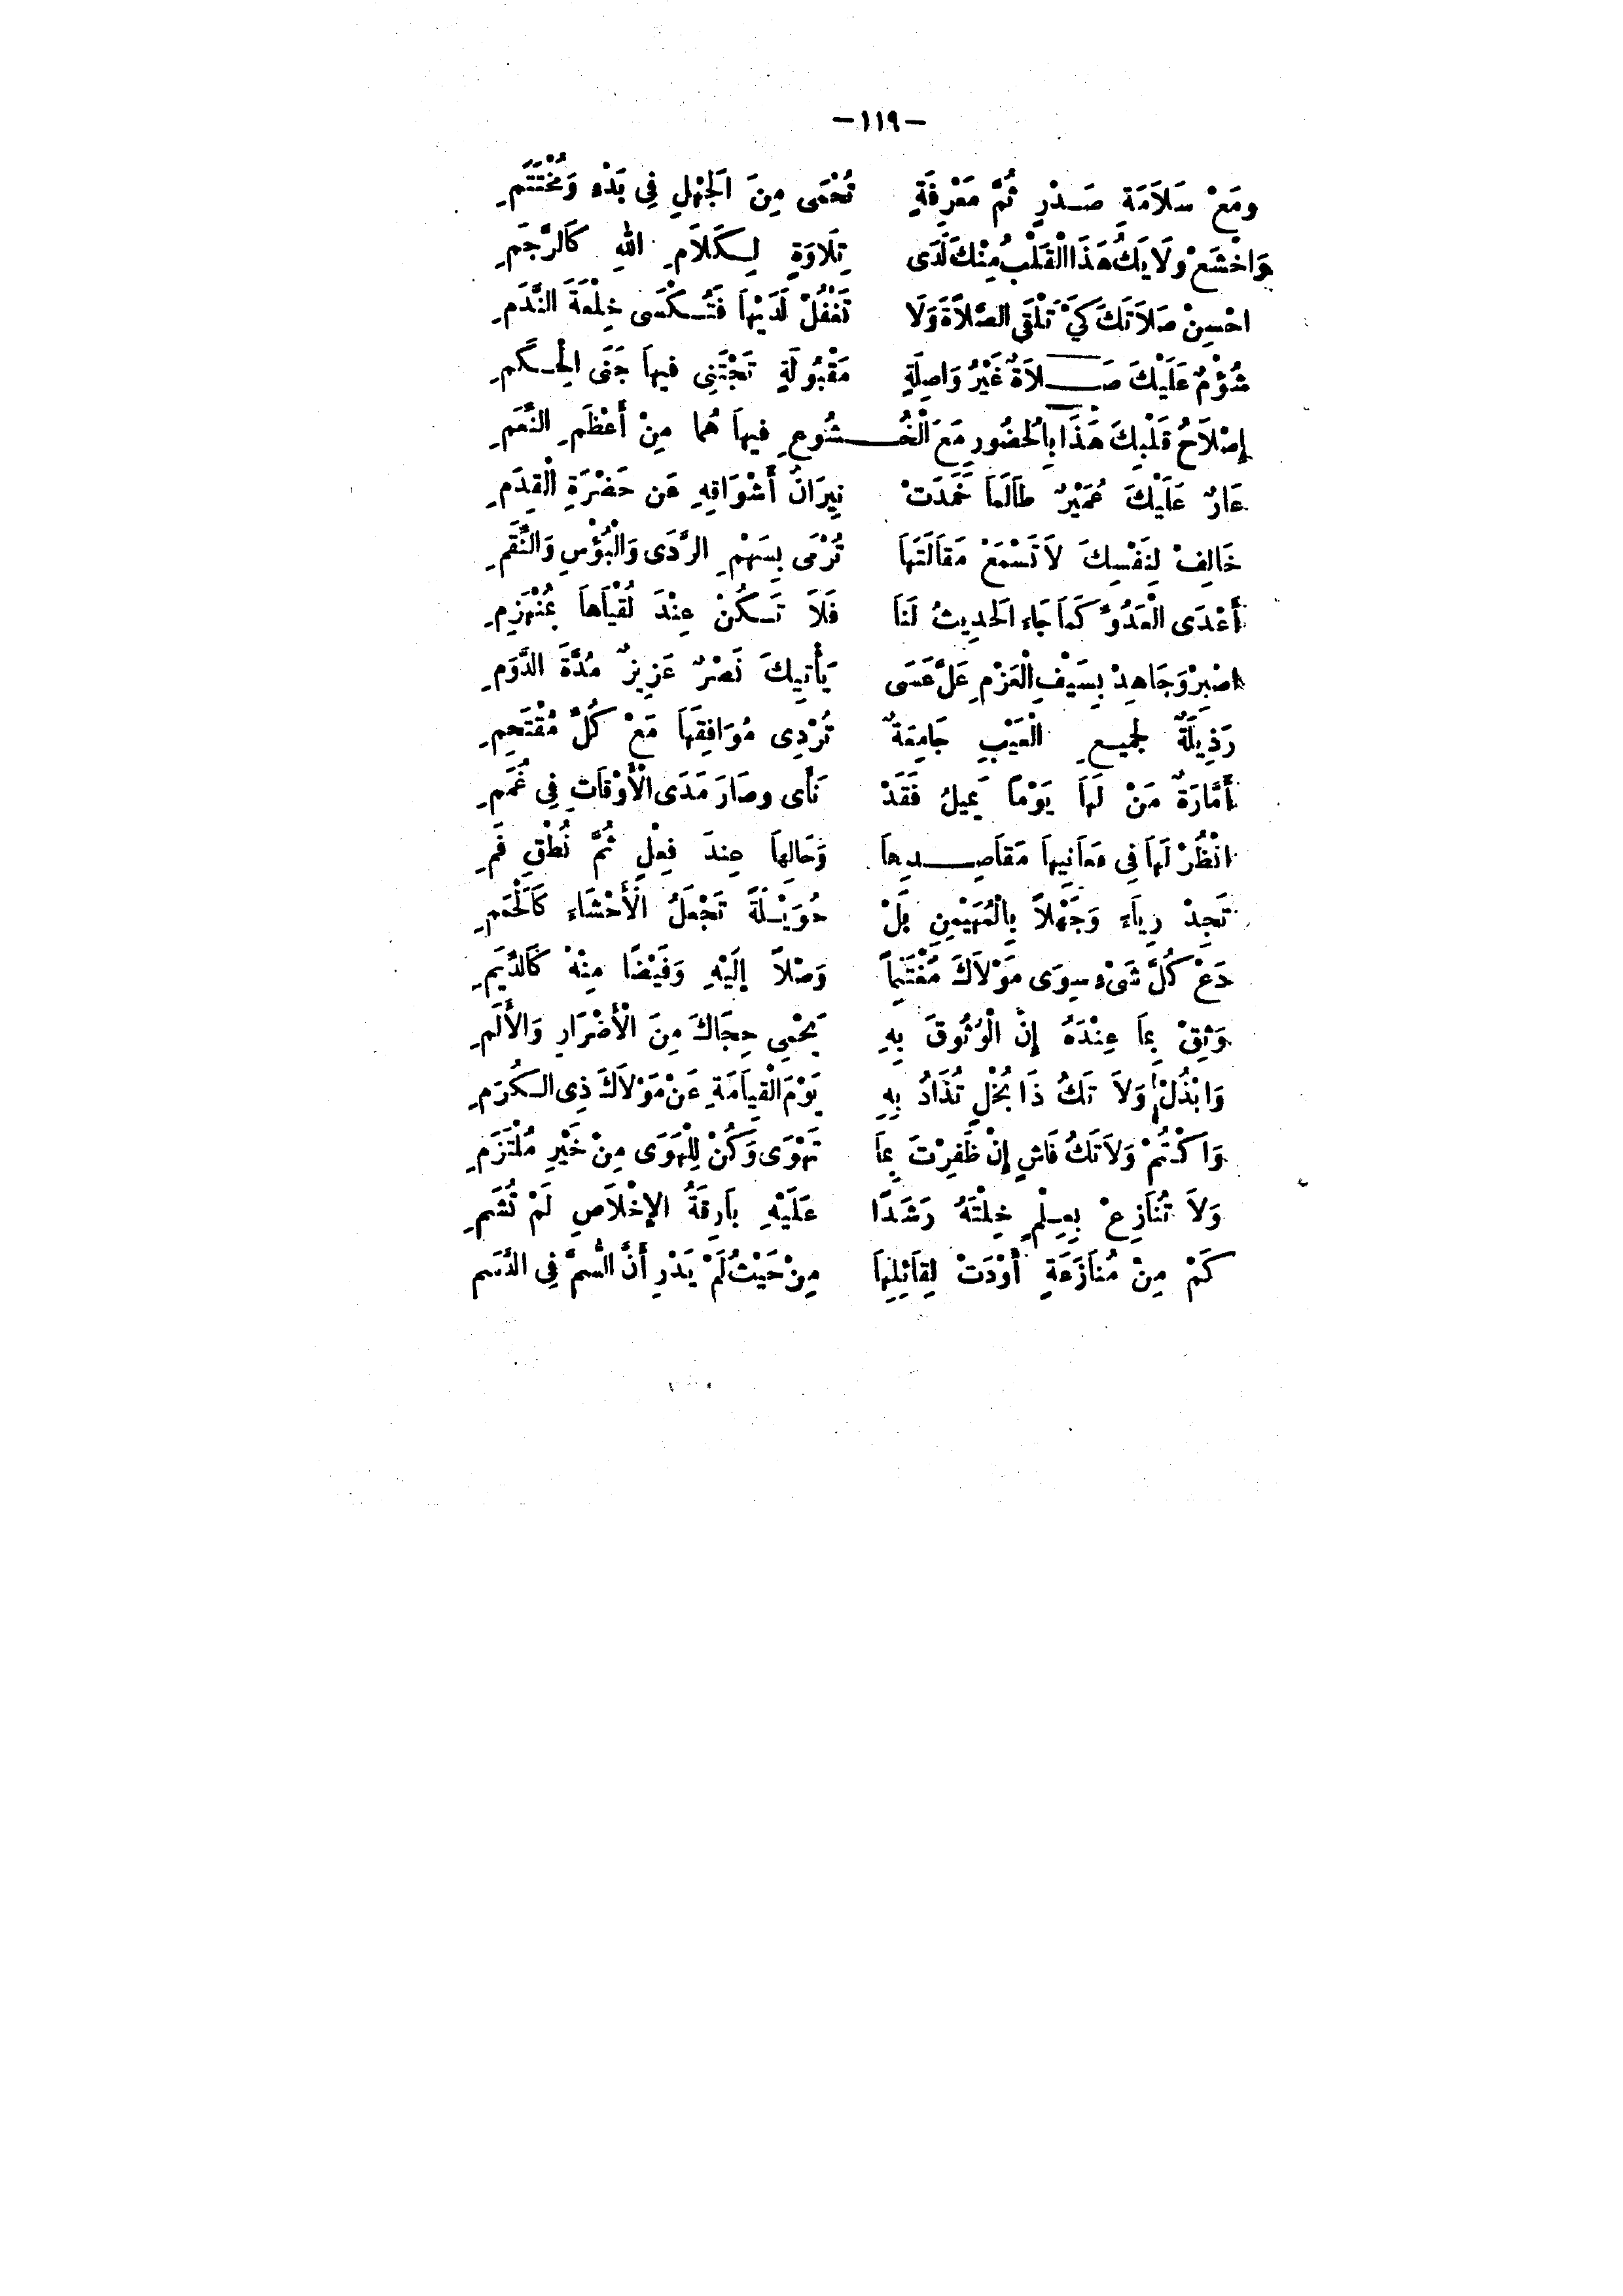 -١١٩-
ومَعْ سَلاَمَةِ صَدْرٍ ثُمَّ مَعْرِفَةٍ تُحْمَى مِنَ الْجَهْلِ فِى بَدْءِ وَمُخْتَتَمِ
وَاخْشَعْ ولَا يَكُ هَذَا الْقَلْبُ مِنْكَ لَدَى تِلَاوَةٍ لِكَلاَمِ اللهِ كَالرَّجَمِ
احْسِنْ صَلاَتَكَ كَىْ تَلْقَى الصَّلاَةَ وَلَا تَغْفُلْ لَدَيْهاَ فَتُكْسَى خِلْعَةَ النَّدَمِ
شُؤْمٌ عَلَيْكَ صَلاَةٌ غَيْرُ وَاصِلَةٍ مَقْبُولَةٍ تَجْتَنِى فيهاَ جَنَى الْحِكَمِ
إصْلاَحُ قَلْبِكَ هَذَا بِالْحضُورِ مَعَ الْخُشُوعِ فيهاَ هُما مِنْ أَعْظَمِ النِّعَمِ
عَارٌ عَلَيْكَ عُمَيْرٌ طاَلَماَ خَمَدَتْ نِيرَانُ أَشْوَاقِهِ عَن حَضْرَةِ الْقِدَمِ
خَالِفْ لِنَفْسِكَ لاَ تَسْمَعْ مَقاَلَتَهاَ تُرْمَى بِسَهْمِ الرَّدَى وَالْبُؤْسِ وَالنِّقَمِ
أَعْدَى الْعَدُوِّ كَماَ جَاءَ الْحَدِيثُ لَنَا فَلَا تَكُنْ عِنْدَ لُقْياَهاَ بِمُنْهَزِمِ
اصْبِرْ وَجَاهِدْ بِسَيْفِ الْعَزْمِ عَلَّ عَسَى يَأْتِيكَ نَصْرٌ عَزِيزٌ مُدَّةَ الدَّوَمِ
رَذِيلَةٌ لجَمِيعِ الْعَيْبِ جَامِعَةٌ تُرْدِى مُوَافِقَهاَ مَعْ كُلِّ مُقْتَحِمِ
أَمَّارَةٌ مَنْ لَهاَ يَوْماً يَمِيلُ فَقَدْ نَأَى وصَارَ مَدَى الْأَوْقَاتِ فِى غُمَمِ
انْظُرْ لَهاَ فِى مَعاَنِيهاَ مَقاَصِدِهاَ وَحَالِهاَ عِندَ فِعْلٍ ثُمَّ نُطْقِ فَمِ
تَجِدْ رِياَءَ وَجَهْلاً بِالْمُهَيْمِنِ بَلْ حُوَيْلَةً تَجْعَلُ الْأَحْشَاءَ كَالْحُمَمِ
دَعْ كُلَّ شَىْءٍ سِوَى مَوْلاَكَ مُغْتَنِماً وَصْلاً إلَيْهِ وَفَيْضًا مِنْهُ كَالدِّيَمِ
وَثِقْ بِماَ عِنْدَهُ إنَّ الْوُثُوقَ بِهِ يَحْمِى حِجَاكَ مِنَ الْأَضْرَارِ وَالأَلَمِ
وَابْذُلْ وَلاَ تَكُ ذَا بُخْلٍ تُذَادُ بِهِ يَوْمَ الْقِياَمَةِ عَنْ مَوْلاَكَ ذِى الكُرَمِ
وَاكْتُمْ وَلاَ تَكُ فَاشٍ إنْ ظَفِرْتَ بِماَ تَهْوَى وَكُنْ لِلْهَوَى مِنْ خَيْرِ مُلْتَزَمِ
وَلاَ تُنَازِعْ بِعِلْمٍ خِلْتَهُ رَشَدًا عَلَيْهِ باَرِقَةُ الإخْلاَصِ لَمْ تُشَمِ
كَمْ مِنْ مُناَزَعَةٍ أَوْدَتْ لِقاَئِلِهاَ مِنْ حَيْثُ لَمْ يَدْرِ أَنَّ السُّمَّ فِى الدَّسَمِ